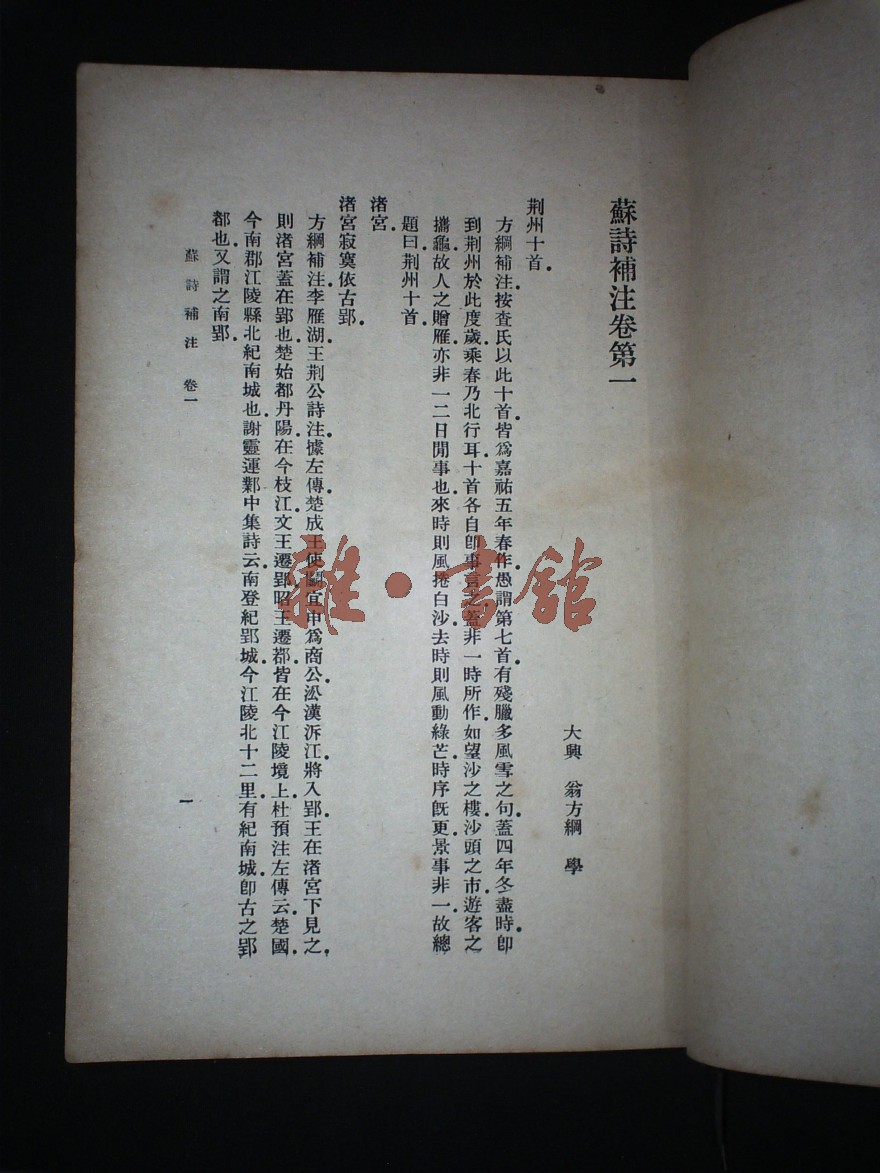 蘇詩補注卷第一
大興 翁方綱 學
荆州十首。
方綱補注。按查氏以此十首皆爲嘉祐五年春作。愚謂第七首有殘臘多風雪之句。蓋四年冬盡時。卽
到荆州。於此度歲。乘春乃北行耳。十首各自卽事言之。蓋非一時所作。如望沙之樓。沙頭之市。遊客之
攜龜。故人之贈雁。亦非一二日閒事也。來時則風捲白沙。去時則風動綠芒。時序旣更。景事非一。故總
題曰荆州十首。
渚宮。
渚宮寂寞依古郢。
方綱補注。李雁湖王荆公詩注。據左傳。楚成王使鬬宜申爲商公。沿漢泝江。將入郢。王在渚宮下見之。
則渚宮蓋在郢也。楚始都丹陽。在今枝江。文王遷郢。昭王遷鄀。皆在今江陵境上。杜預注左傳云。楚國。
今南郡江陵縣北紀南城也。謝靈運鄴中集詩云。南登紀郢城。今江陵北十二里。有紀南城。卽古之郢
都也。又謂之南郢。
蘇詩補注 卷一
一
雜·書館